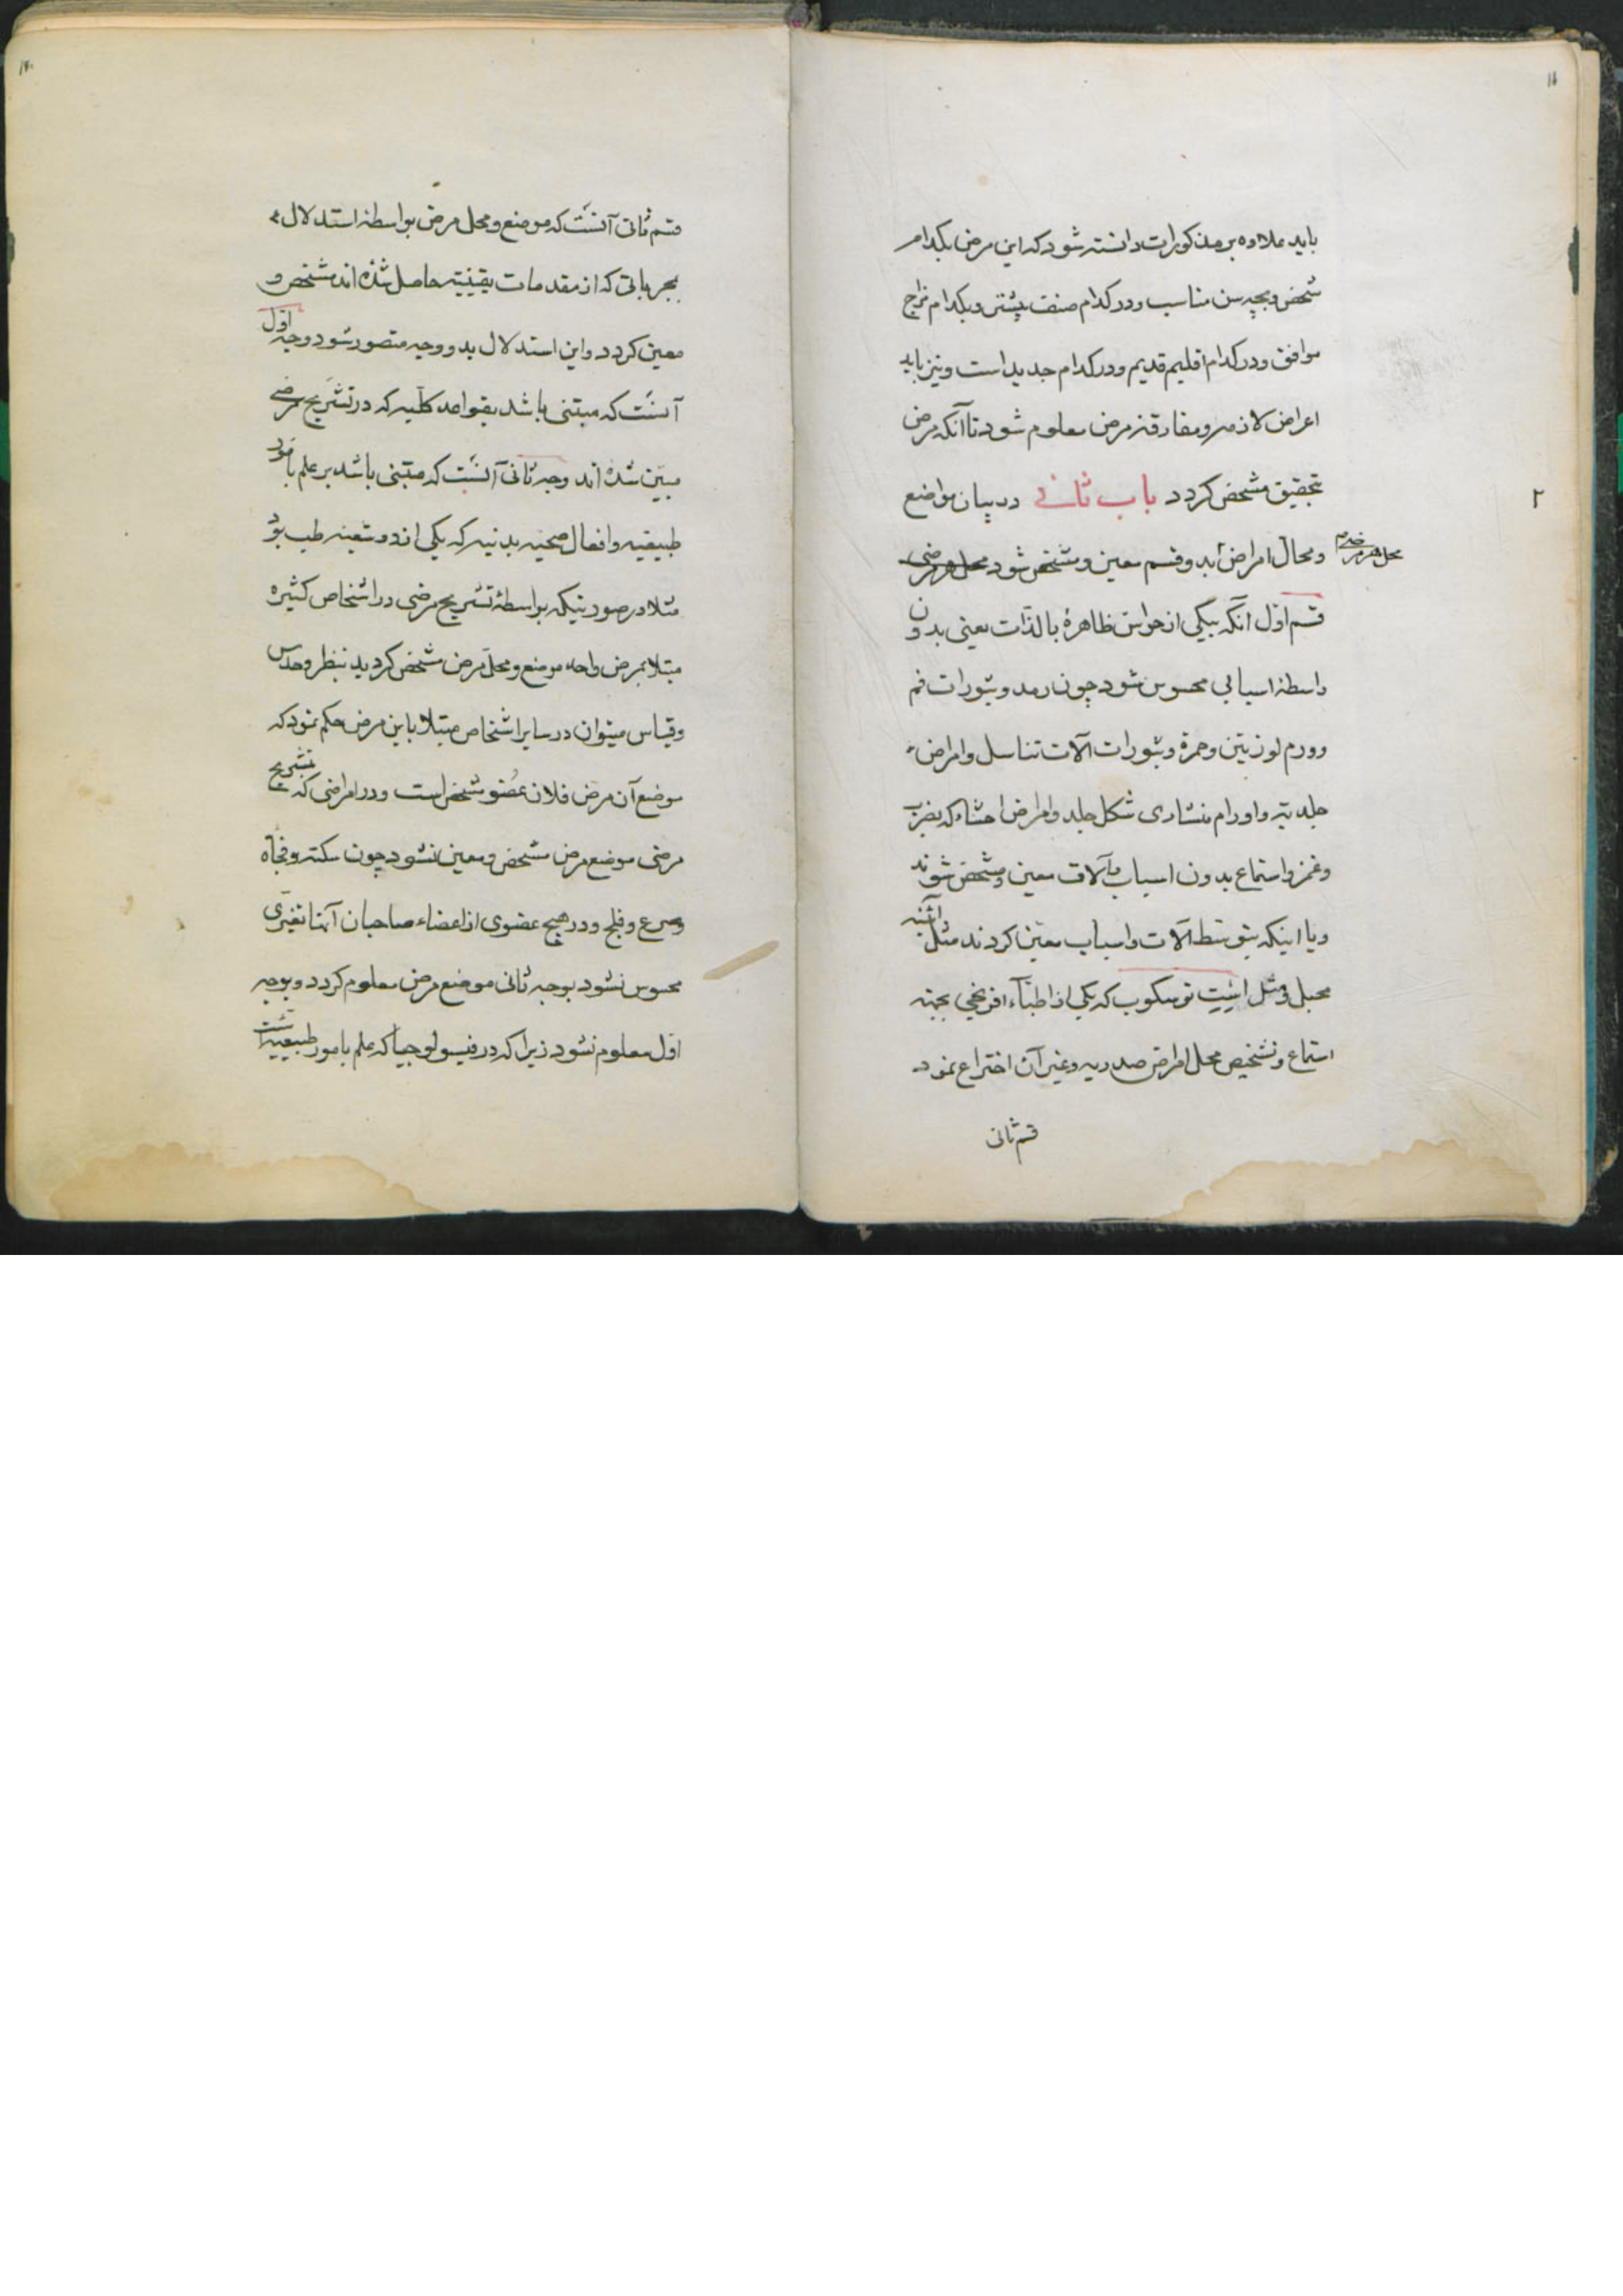 ۱۱
باید علاوه بر مذکورات دانسته شود که این مرض بکدام
شخص و بچه سن مناسب و در کدام صنف بیشتر و بکدام مزاج
موافق و در کدام اقلیم قدیم و در کدام جدید است و نیز باید
اعراض لازمه و مفارقه مرض معلوم شود تا آنکه مرض
بتحقیق مشخص کردد باب ثانی در بیان مواضع
۲
و محال امراض بدو قسم معین و مشخص شود محل هر مرضی
محل هر مرضی
قسم اول آنکه بیکی از حواس ظاهرهٔ بالذات یعنی بدون
واسطهٔ اسبابی محسوس شود چون رمد و بثورات فم
و ورم لوزیتین و حمرة و بثورات آلات تناسل و امراض
جلدیه و اورام منشاری شکل جلد و امراض احشاء که بضرب
و غمز و استماع بدون اسباب و آلات معین و مشخص شوند
و یا اینکه بتوسط آلات و اسباب معین کردند مثل آئینه
محبل و مثل استتوسکوب که یکی از اطباء افرنجی بجهة
استماع و تشخیص محل امراض صدریه و غیر آن اختراع نمود
قسم ثانی
قسم ثانی آنست که موضع و محل مرض بواسطهٔ استدلال
بجرباتی که از مقدمات یقینیه حاصل شده اند مشخص و
معین کردد و این استدلال بدو وجه متصور شود وجه اول
آنست که مبتنی باشد بقواعد کلیه که در تشریح مرضی
مبین شده اند وجه ثانی آنست که مبتنی باشد بر علم بامور
طبیعیه و افعال صحیه بدنیه که یکی از دو شعبه طب بود
مثلا در صورتیکه بواسطهٔ تشریح مرضی در اشخاص کثیره
مبتلا بمرض واحد موضع و محل مرض مشخص کردید بنظر و حدس
و قیاس میتوان در سایر اشخاص مبتلا باین مرض حکم نمود که
موضع آن مرض فلان عضو مشخص است و در امراضی که بتشریح
مرضی موضع مرض مشخص و معین نشود چون سکته و فجأه
و صرع و فلج و در هیچ عضوی از اعضاء صاحبان آنها تغیری
محسوس نشود بوجه ثانی موضع مرض معلوم کردد و بوجه
اول معلوم نشود زیرا که در فیسولوجیا که علم بامور طبیعیه است